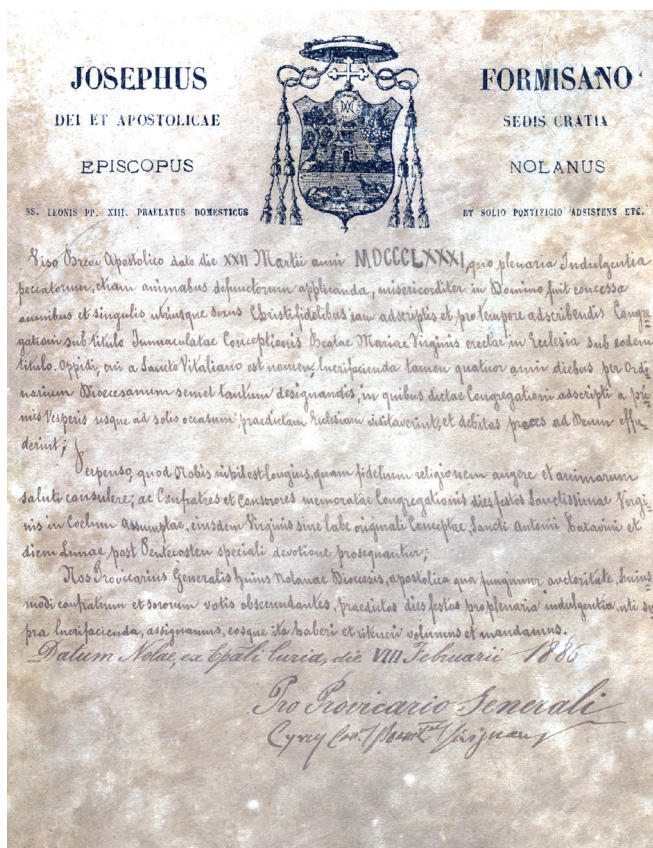 JOSEPHUS FORMISANO
DEI ET APOSTOLICAE SEDIS GRATIA
EPISCOPUS NOLANUS
SS. LEONIS PP. XIII. PRAELATUS DOMESTICUS ET SOLIO PONTIFICIO ADSISTENS ETC.
Viso Brevi Apostolico dato die XXII Martii anni MDCCCLXXXI, quo plenaria Indulgentia
peccatorum, etiam animabus defunctorum applicanda, misericorditer in Domino fuit concessa
omnibus et singulis utriusque sexus Christifidelibus iam adscriptis et pro tempore adscribendis Congre-
gationi sub titulo Immaculatae Conceptionis Beatae Mariae Virginis erectae in Ecclesia sub eodem
titulo. Oppidi, cui a Sancto Vitaliano est nomen; lucrifacienda tamen quatuor anni diebus per Ordi-
narium Dioecesanum semel tantum designandis, in quibus dictae Congregationi adscripti a pri-
mis Vesperis usque ad solis occasum praedictam Ecclesiam visitaverint, et debitas preces ad Deum effu-
derint;
Perpenso, quod Nobis nihil est longius, quam fidelium religionem augere et animarum
saluti consulere; ac Confratres et Consorores memoratae Congregationis dies festos Sanctissimae Virgi-
nis in Coelum Assumptae, eiusdem Virginis sine labe originali Conceptae, Sancti Antonii Patavini et
diem Lunae post Pentecosten speciali devotione prosequantur;
Nos Provicarius Generalis huius Nolanae Diocesis, apostolica qua fungimur auctoritate, huius-
modi confratrum et sororum votis obsecundantes, praedictos dies festos pro plenaria indulgentia, uti su-
pra lucrifacienda, assignamus, eosque ita haberi et retineri volumus et mandamus.
Datum Nolae, ex Epāli Curia, die VIII Februarii 1886
Pro Provicario Generali